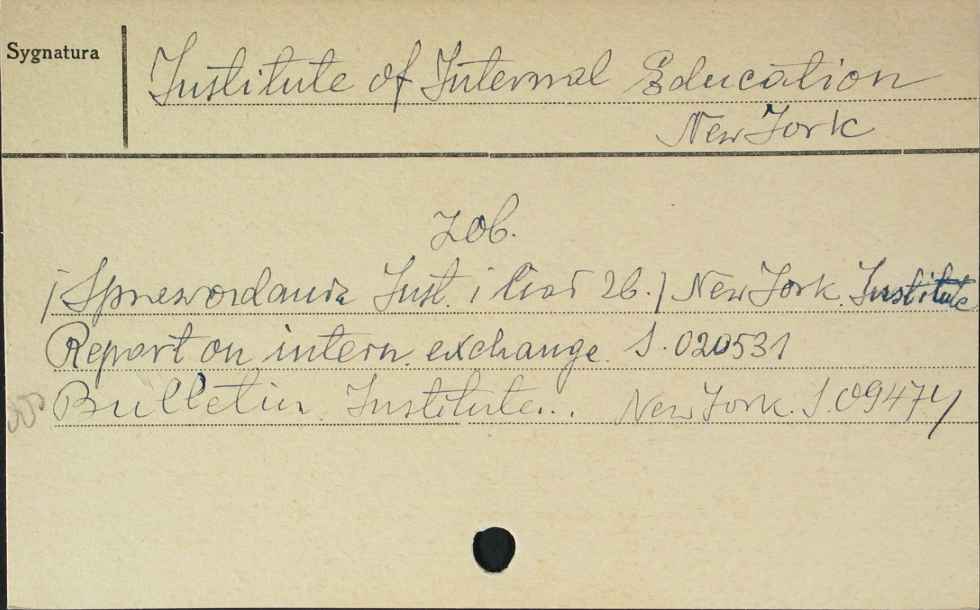 Sygnatura
Institute of Internal Education
New York
zob.
/ Sprawozdania Inst. i 26. / New York. Institute
Report on intern. exchange. S. 020531
Bulletin. Institute... New York. S. 09474